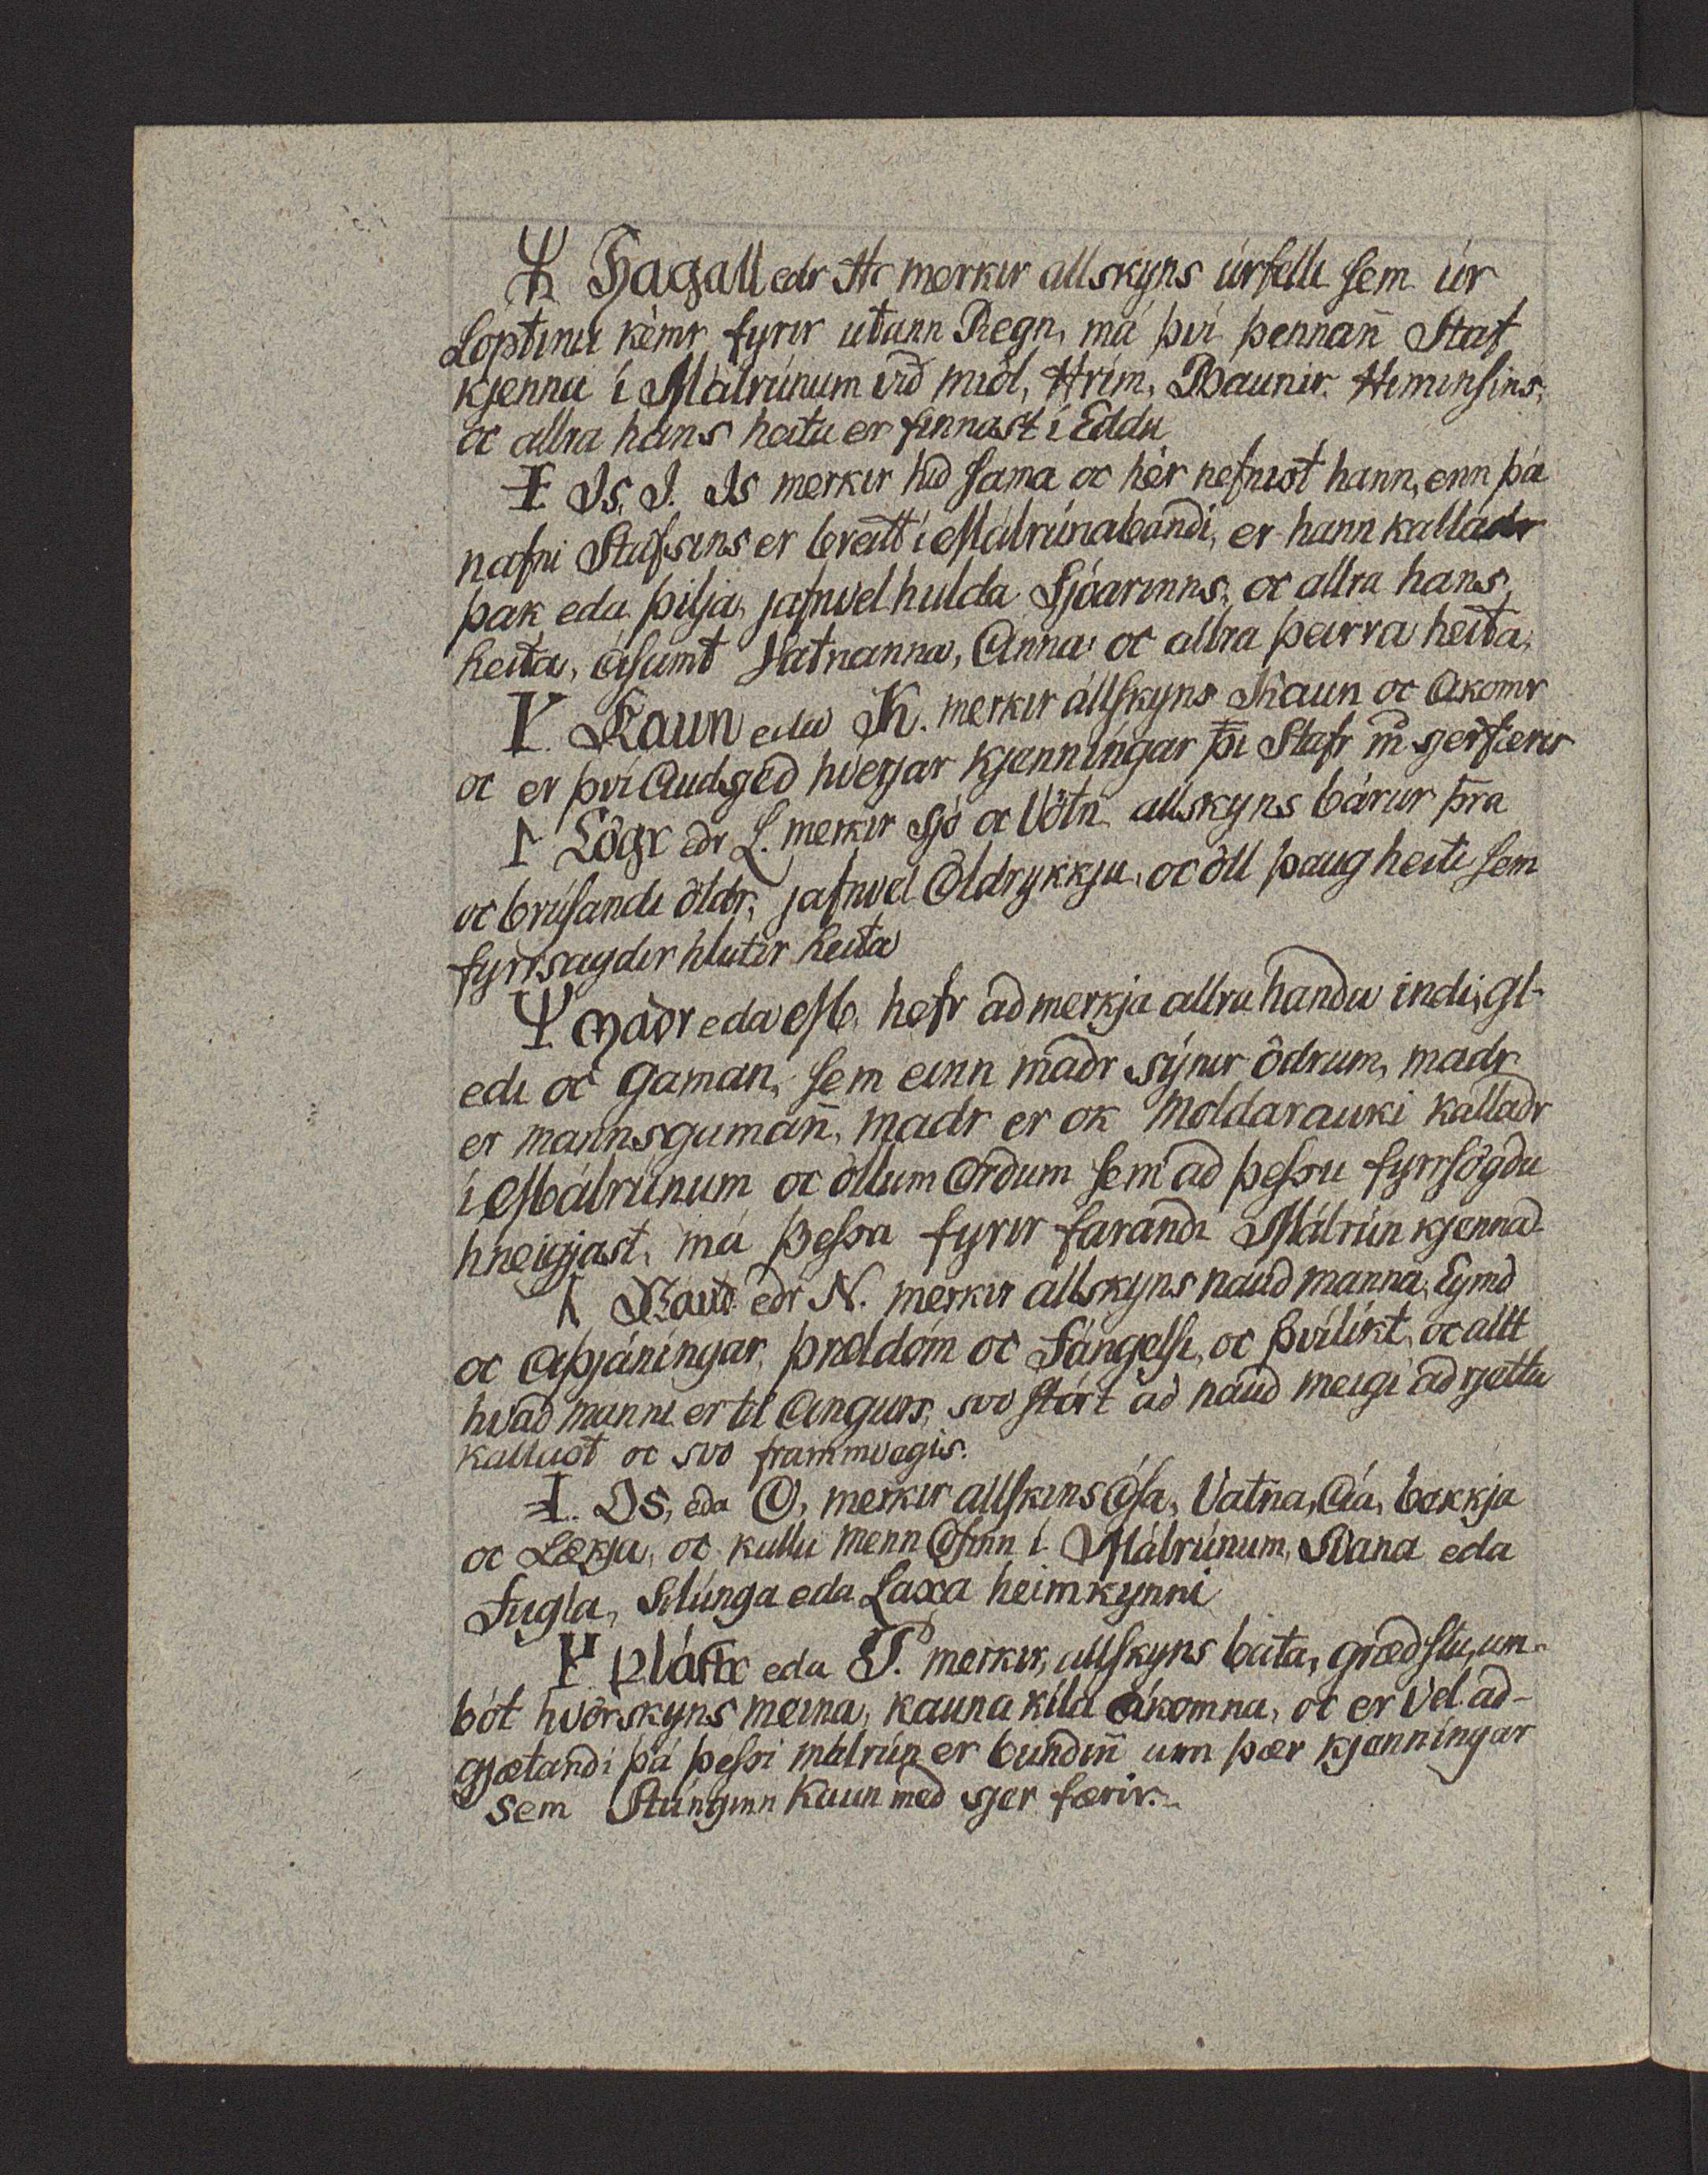 ᛡ Hagall edr H merkir allskyns úrfelli sem úr
Loptinu kèmr fyrir utann Regn, má því þennan̄ Staf
kjenna í Málrúnum vid miöl, Hrím, Baunir Himinsins,
oc allra hans heita er finnast í Eddu
ᛂ Is. I. Is merkir hid sama oc hér nefnist hann, enn þá
nafni Stafsins er breitt í Málrúnabandi, er hann kalladr
þak eda þilja, jafnvel hulda Sjóarinns, oc allra hans
heita, ásamt Vatnanna, Anna oc allra þeirra heita,
ᚴ. Kaun eda K. merkir allskyns Kaun oc Akomr
oc er því Audsged hverjar kjenningar þi Stafr m̄ sjer færir
ᛚ Lögr edr L. merkir sjó oc Vötn allskyns bárur þra
oc brúsandi öldr, jafnvel Öldrykkju, oc öll þaug heiti sem
fyrrsagdir hlutir heita
ᛘ Madr eda M. hefr ad merkja allra handa indi, gl-
edi oc gaman, sem einn madr sýnir ödrum, madr
er mannsgaman̄, madr er ok Moldarauki kalladr
í Málrúnum oc öllum Ordum sem ad þessu fyrrsögdu
hneigjast, má þessa fyrir farandi Málrún kjennad
ᚾ Naud edr N. merkir allskyns naud manna, Eymd
oc Aþjáningar, þreldóm oc Fángelsi, oc þvílíkt, oc allt
hvad manni er til Angurs, svo stórt ad naud meigi ad rjettu
kallast oc svo frammvegis.
ᚮ. Os, eda O, merkir allskins Ósa, Vatna, Áa, bekkja
oc Lækja, oc kalla menn Ósinn í Málrúnum, Svana eda
Fugla, Silúnga eda Laxa heimkynni
Plástr eda P. merkir, allskyns bata, grædslu, um-
bót hvörskyns meina, kauna kíla ákomna, oc er Vel ad-
gjætandi þá þessi málrún er bundin̄ um þær kjenningar
sem Stúnginn Kaun med sjer færir.